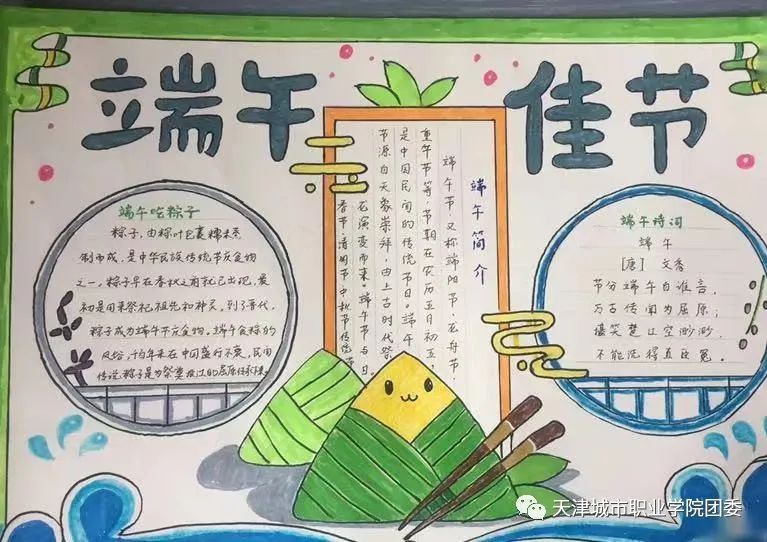 端午佳节
端午吃粽子
粽子,由粽叶包裹糯米蒸
制而成,是中华民族传统节庆食物
之一。粽子早在春秋之前就已出现,最
初是用来祭祀祖先和神灵,到了晋代,
粽子成为端午节庆食物。端午食粽的
风俗,千百年来在中国盛行不衰,民间
传说粽子是为祭奠投江的屈原传承来。
端午简介
端午节,又称端阳节·龙舟节·
重午节等,节期在农历五月初五,
是中国民间的传统节日。端午
节源自天象崇拜,由上古时代祭
龙演变而来。端午节与
春节·清明节·中秋节传统节日。
端午诗词
端午
[唐] 文秀
节分端午自谁言,
万古传闻为屈原;
堪笑楚江空渺渺,
不能洗得直臣冤。
天津城市职业学院团委